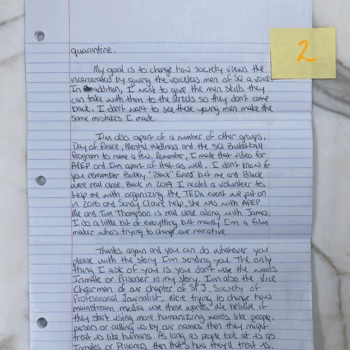 2
quarantine.
My goal is to change how society views the
incarcerated by giving the voiceless men of SQ a voice.
In addition, I want to give the men skills they
can take with them to the streets so they don't come
back. I don't want to see these young men make the
same mistakes I made.
I'm also apart of a number of other groups,
Day of Peace, Mental Wellness and the SQ Basketball
Program to name a few. Remember, I made that video for
AFEP and I'm apart of that as well. I don't know if
you remember Bobby "Black" Evans but me and Black
were real close. Back in 2014 I needed a volunteer to
help me with organizing the TEDx event we put on
in 2016 and Sandy Claire help, she was with AFEP.
Me and Tim Thompson is real close along with James,
I do a little bit of everything but mainly I'm a film
maker who's trying to change our narrative
Thanks again and you can do whatever you
please with the story I'm sending you. The only
thing I ask of you is you don't use the words
Inmate or Prisoner in my story. I'm also the Vice
Chairmen of our chapter of SPJ, Society of
Professional Journalist. We're trying to change how
mainstream media use those words. We believe if
they start using more humanizing words like people,
person or calling us by our names then they might
treat us like humans. As long as people look at us as
Inmates or Prisoners then that's how they'll treat us.